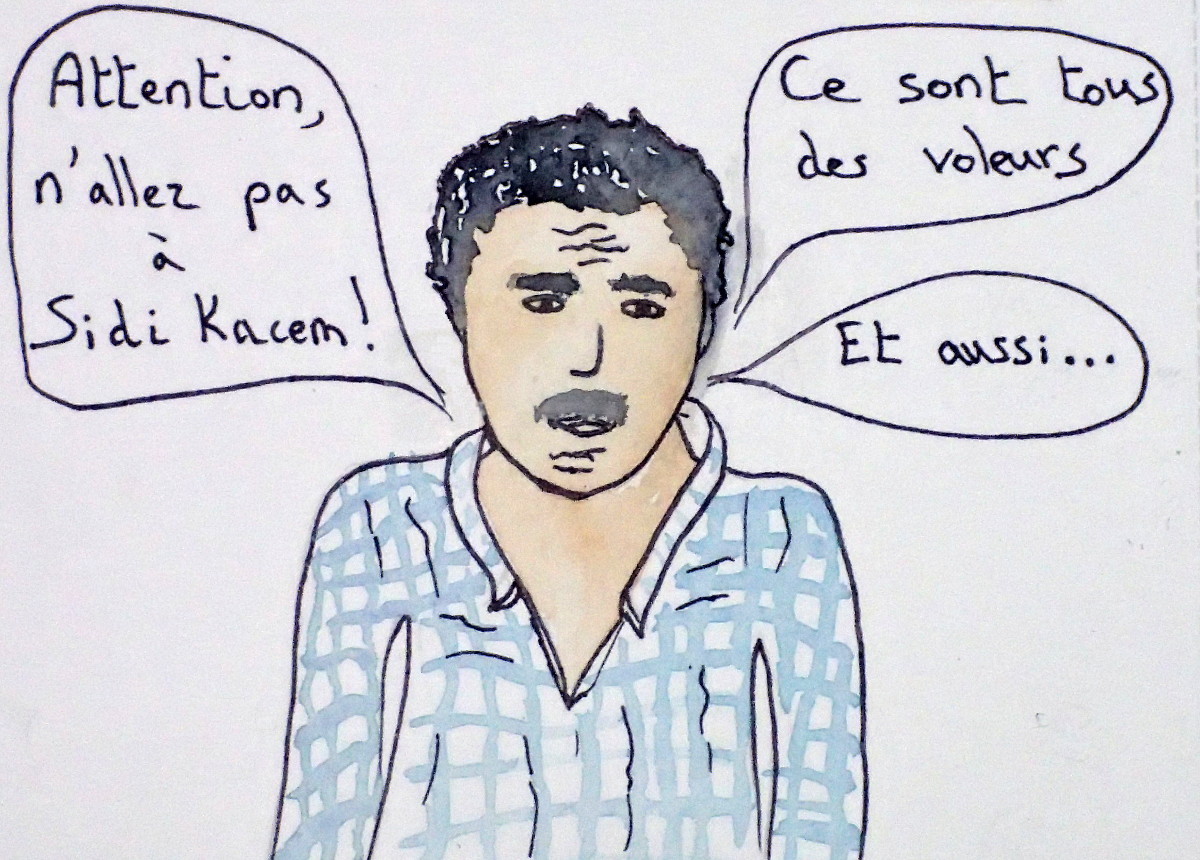 Attention,
n'allez pas
à
Sidi Kacem!
Ce sont tous
des voleurs
Et aussi...